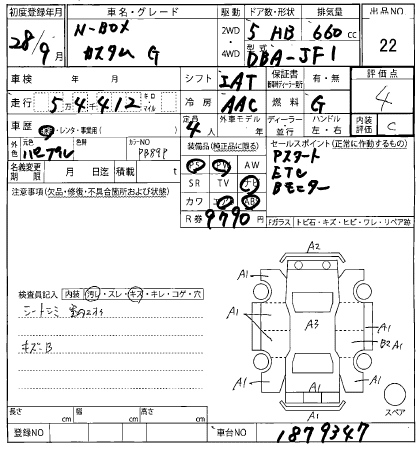 初度登録年月 車名・グレード 駆動 ドア数・形状 排気量 出品NO
28/9月 N-BOX カスタム G 2WD 4WD 5 HB 660cc 22
型式 DBA-JF1
車検 年 月 シフト IAT 保証書 有・無 評価点 4
走行 5万4千412 キロ・マイル 冷房 AAC 燃料 G 内装評価 C
車歴 ・レンタ・事業用( ) 定員 4人 外車モデル 年 ディーラー・並行 ハンドル 左・右
元色 パープル 色替 カラーNO PB89P 装備品(純正品に限る) セールスポイント(正常に作動するもの)
名義変更期限 月 日迄 積載 t PS PW AW Pスタート
SR TV ナビ ETC
カワ エアB ABS Bモニター
R券 9790円
注意事項(欠品・修復・不具合箇所および状態)
Fガラス トビ石・キズ・ヒビ・ワレ・リペア跡
検査員記入 内装 汚レ・スレ・キズ・キレ・コゲ・穴
シートシミ
キズ-B
A2
A1 A1
A1 A3 A1
B2 A1
A1 A1
A1
A1
スペア
長さ cm 幅 cm 高さ cm
登録NO 車台NO 1879347